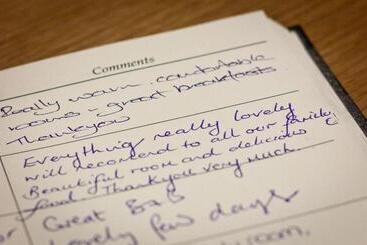 Comments
Really warm comfortable
rooms - great breakfasts
Thankyou
Everything really lovely
will recomend to all our family
Beautiful room and delicious
food. Thankyou very much.
Great B&B
lovely few days
room,
or